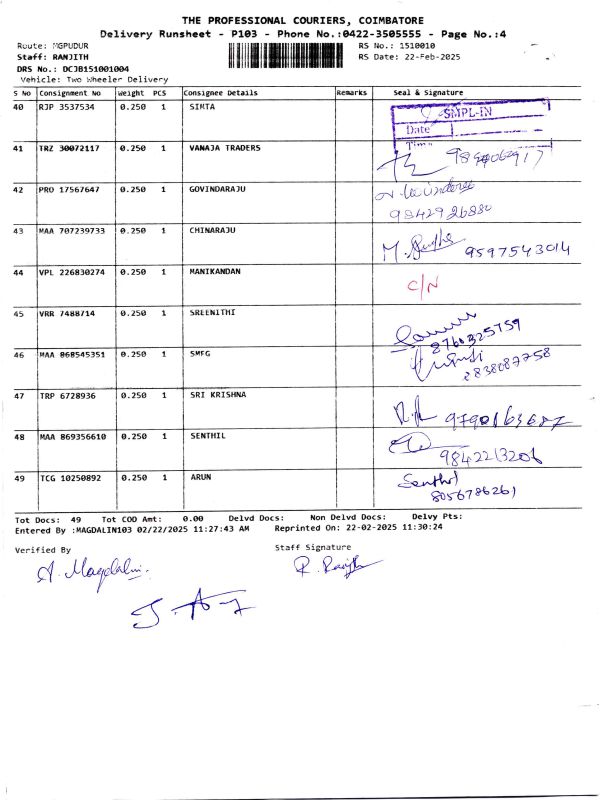 THE PROFESSIONAL COURIERS, COIMBATORE
Delivery Runsheet - P103 - Phone No.:0422-3505555 - Page No.:4
Route: MGPUDUR RS No.: 1510010
Staff: RANJITH RS Date: 22-Feb-2025
DRS No.: DCJB151001004
Vehicle: Two Wheeler Delivery
S No Consignment No Weight PCS Consignee Details Remarks Seal & Signature
40 RJP 3537534 0.250 1 SIMTA SMPL-IN
Date
Time
41 TRZ 30072117 0.250 1 VANAJA TRADERS
42 PRO 17567647 0.250 1 GOVINDARAJU
9842926880
43 MAA 707239733 0.250 1 CHINARAJU 9597543014
44 VPL 226830274 0.250 1 MANIKANDAN C/N
45 VRR 7488714 0.250 1 SREENITHI
8760325759
46 MAA 868545351 0.250 1 SMFG
2838087758
47 TRP 6728936 0.250 1 SRI KRISHNA 9790163687
48 MAA 869356610 0.250 1 SENTHIL
9842213206
49 TCG 10250892 0.250 1 ARUN Senthil
8056786261
Tot Docs: 49 Tot COD Amt: 0.00 Delvd Docs: Non Delvd Docs: Delvy Pts:
Entered By :MAGDALIN103 02/22/2025 11:27:43 AM Reprinted On: 22-02-2025 11:30:24
Verified By Staff Signature
A. Magdalin. R. Ranjith